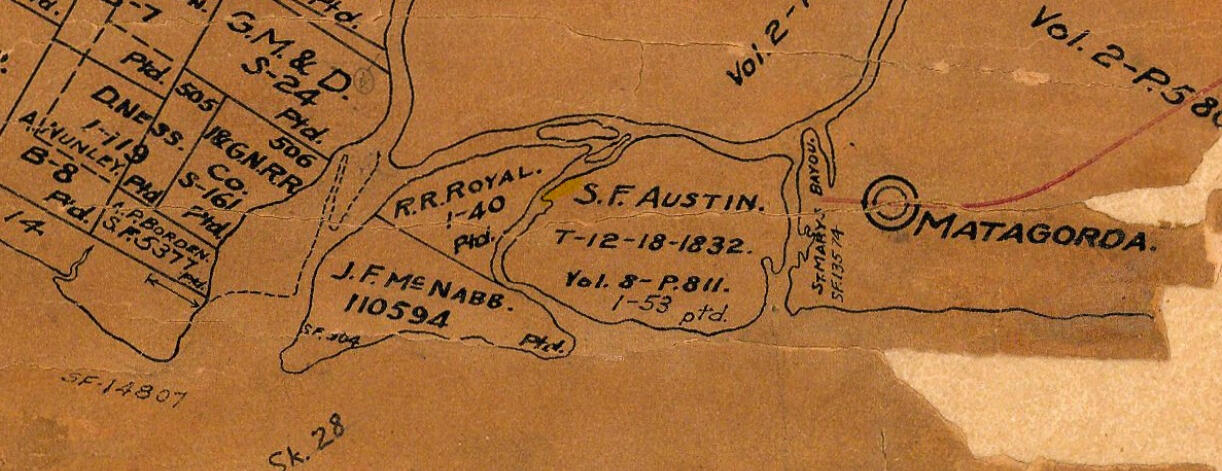 Ptd.
G.M.&D.
S-24
Ptd.
-7
Ptd.
505
D.NESS.
1-119
A.WUNLEY.
B-8
Ptd.
Ptd
I&G.N.R.R.
506
CO.
S-161
Ptd.
A.P.BORDEN.
S.F.5377
ptd.
14
SF-14807
R.R.ROYAL.
1-40
Ptd.
J.F.McNABB.
110594
SF.304
Ptd.
S.F. AUSTIN.
T-12-18-1832.
Vol. 8-P.811.
1-53 ptd.
Vol. 2-
ST.MARYS BAYOU.
SF.13574
MATAGORDA.
Vol. 2-P.580
Sk. 28